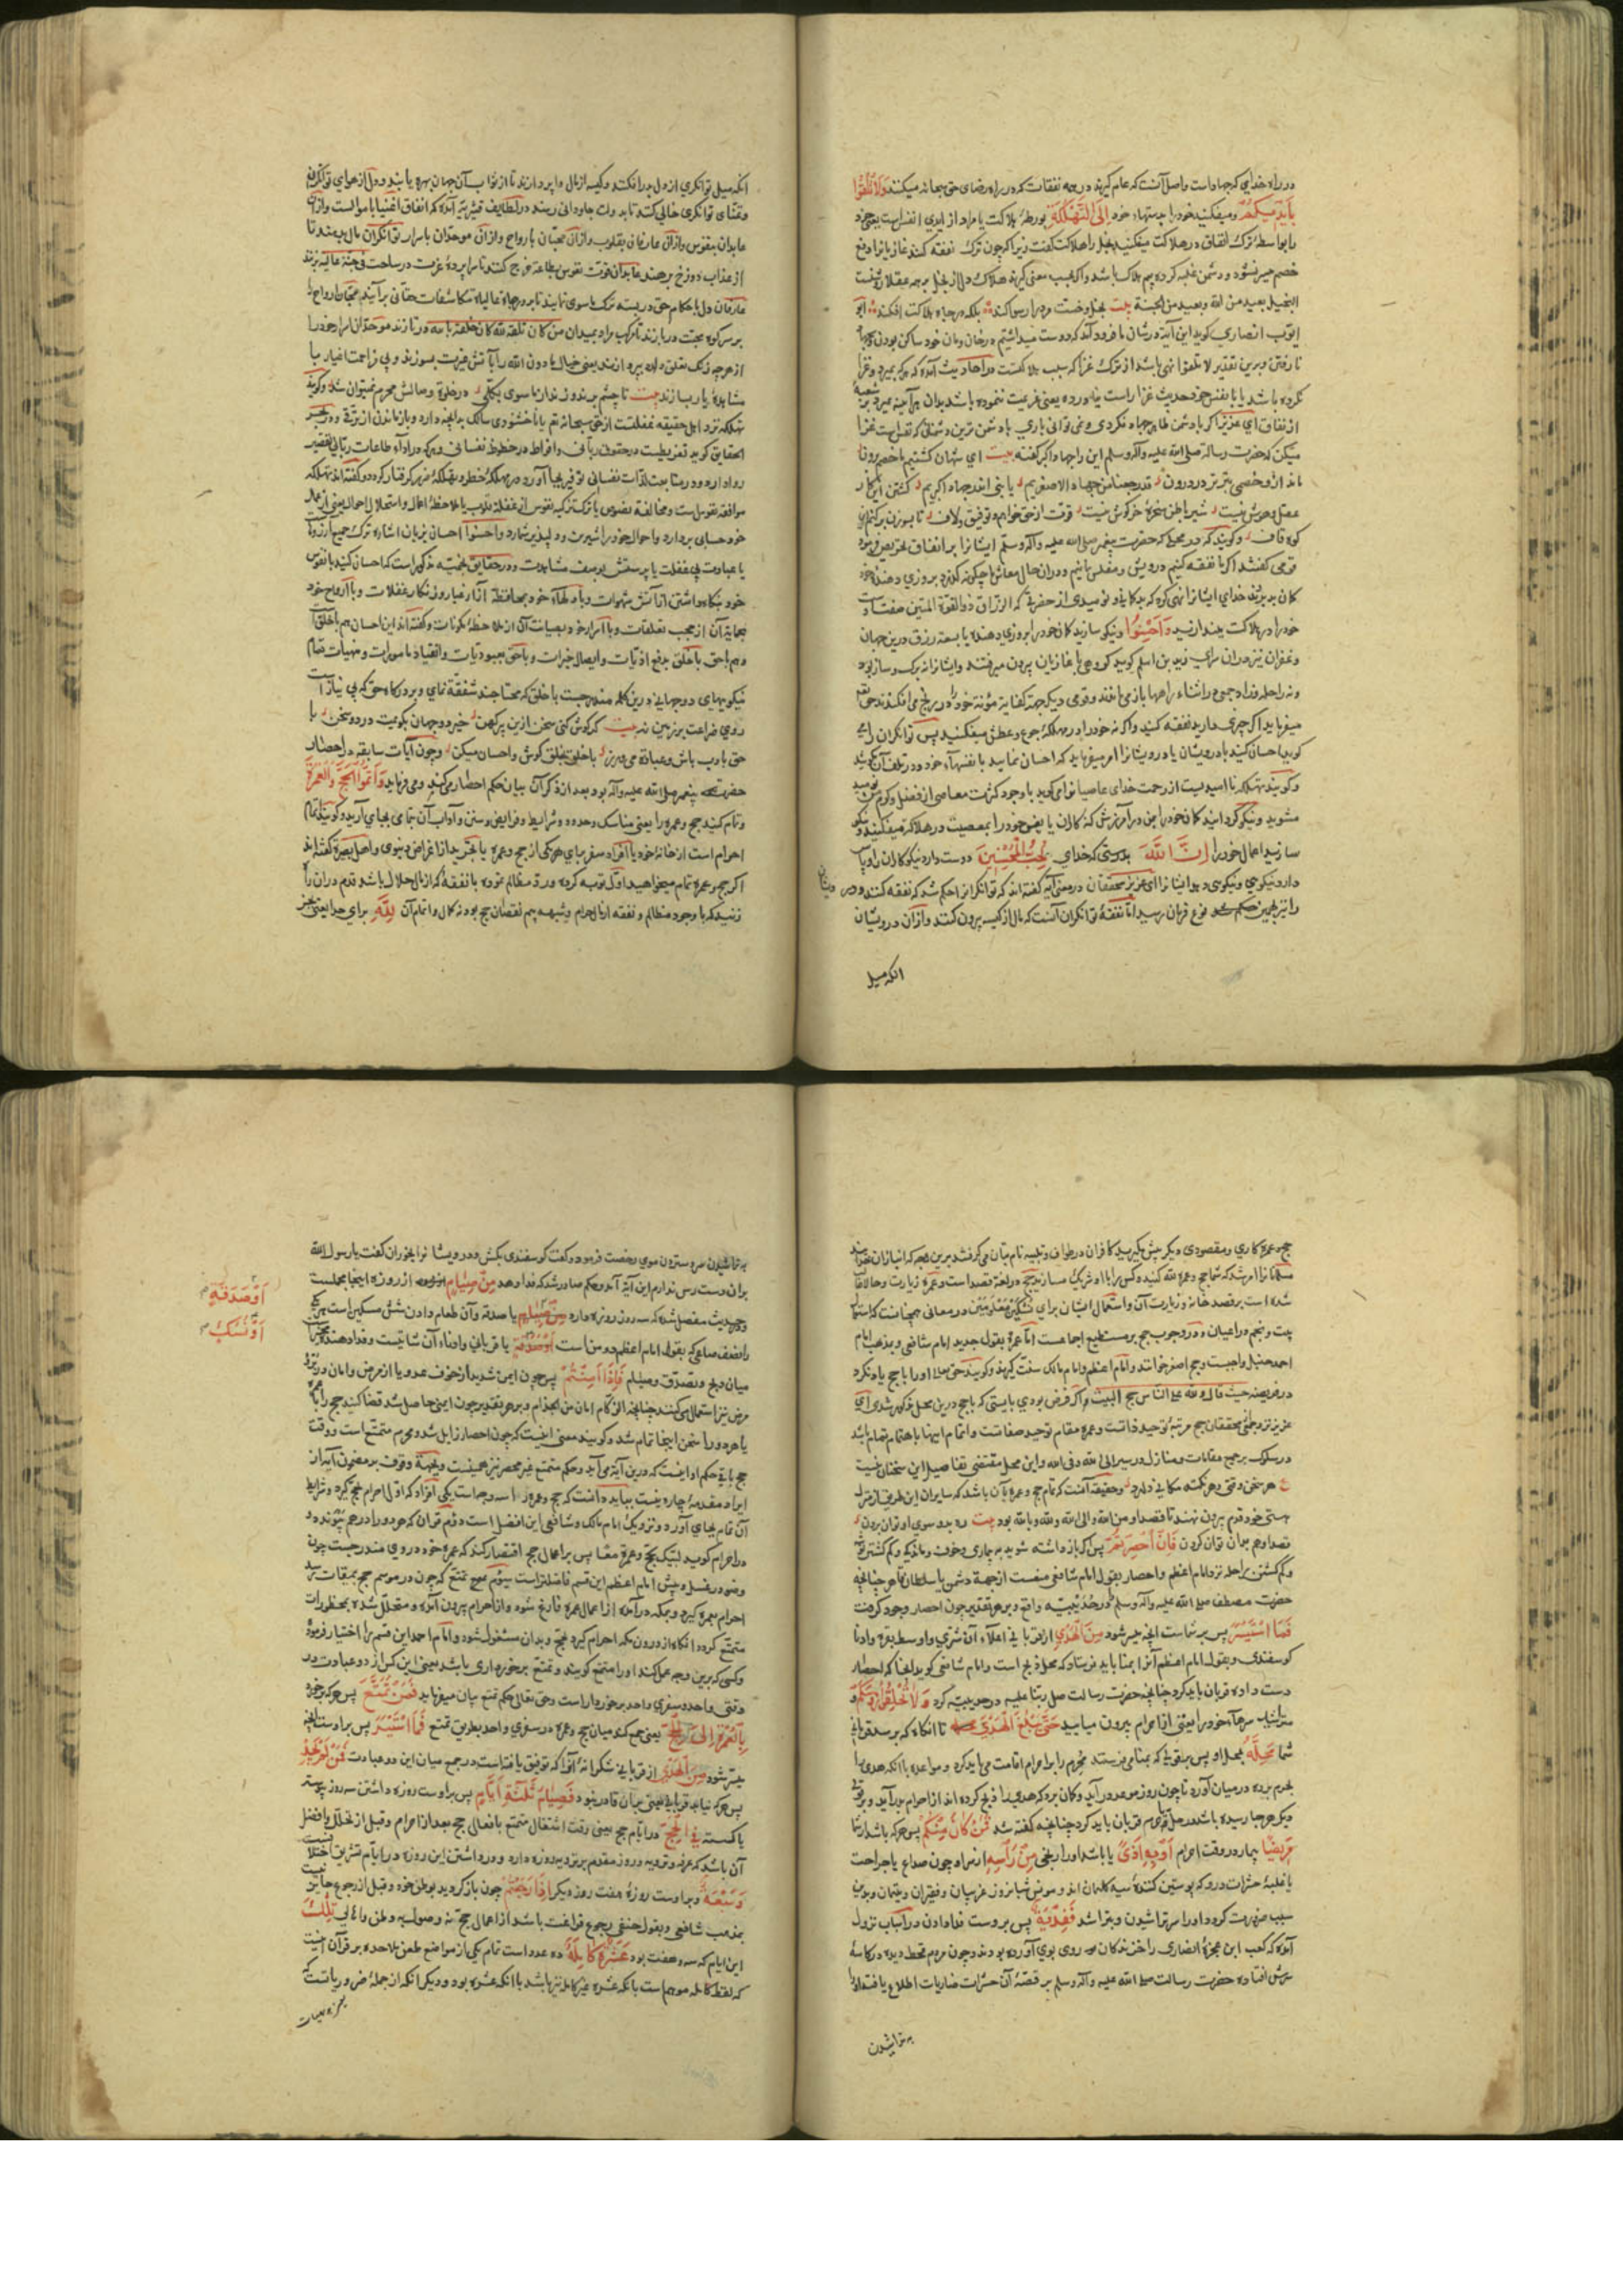 در راه خدای که جهاد است واصل آنست که عام گیرند در همه نفقات که در راه رضای حق سبحانه میکنند وَلَا تُلْقُوا
بِأَيْدِيكُمْ ومیفکنید خود را بدستهاء خود إِلَى التَّهْلُكَةِ بورطهٔ هلاکت یا مراد از ایدی انفس است یعنی خود
را بواسطهٔ ترک انفاق در هلاکت میفکنید بخل را هلاکت گفت زیرا که چون ترک نفقه کنند غاز یانرا دفع
خصم میسر نشود و دشمن غلبه کرده بیم هلاک باشد واگر بحسب معنی گیرند هلاک دل از بخل بر همه عقلا روشنست
البخیل بعید من الله وبعید من الجنة بیت بخل وخست مرد را رسوا کند بلکه در چاه هلاکت افکند ابو
ایوب انصاری گوید این آیه در شان ما فرود آمد که دوست میداشتیم در خان ومان خود ساکن بودن
نارفتن وبرین تقدیر لا تلقوا نهی باشد از ترک غزا که سبب هلاکتست در احادیث آمده که هرکه بمیرد وغزا
نکرده باشد یا با نفس خود حدیث غزا راست نیاورده یعنی عزیمت ننموده باشد بدان هر آینه بمیرد بر شعبهٔ
از نفاق ای عزیز اگر با دشمن ظاهر جهاد نکردی ونمی توانی باری با دشمن ترین دشمنانی که نفس است غزا
میکن که حضرت رسالة صلی الله علیه وآله وسلم این را جهاد اکبر گفته بیت ای شهان کشتیم ما خصم برون
ماند از و خصمی بتر در درون قد رجعنا من جهاد الاصغریم با نبی اندر جهاد اکبریم کشتن این کار
عقل وهوش نیست شیر باطن سخرهٔ خرگوش نیست قوت از حق خواهم وتوفیق ولاف تا بسوزن برکنم این
کوه قاف وگویند که در محلی که حضرت پیغمبر صلی الله علیه وآله وسلم ایشانرا بر انفاق تحریص فرمود
قومی گفتند اگر ما نفقه کنیم درویش و مفلس مانیم ودران حال معاش ما چگونه گذرد بروزی دهنده خود
گمان بد بردند خدای ایشانرا نهی کرد که بدگمانی ونومیدی از حضرتی که الرزاق ذو القوة المتین صفت اوست
خود را در هلاکت میندازید وَأَحْسِنُوا ونیکو سازید گمان خود را بروزی دهنده یا بسعة رزق درین جهان
وغفران نیز دران سرای زید بن اسلم گوید گروهی با غازیان بیرون میرفتند وایشانرا نه برگ وساز بود
ونه راحله وزاد جمعی در اثناء راهها باز می ماندند وقومی دیگر جهة کفایة مؤنة خود را در رنج می افکندند حق تع
میفرماید اگر چیزی دارید نفقه کنید واگر نه خود را در مهلکهٔ جوع وعطش میفکنید پس توانگران را می
گوید احسان کنید با درویشان یا درویشانرا امر میفرماید که احسان نمایید با نفسهاء خود ودر تلف آن مکوشید
وگویند تهلکه نا امیدیست از رحمت خدای عاصیانرا می گوید با وجود کثرت معاصی از فضل وکرم من نومید
مشوید ونیکو گردانید گمان خود را بمن در آمرزش گناهان یا یعنی خود را بمعصیت در هلاکت میفکنید ونیکو
سازید اعمال خود را إِنَّ اللَّهَ بدرستی که خدای يُحِبُّ الْمُحْسِنِينَ دوست دارد نیکو کاران را وپاس
دارد نیکویی ونیکویی دهد ایشانرا ای عزیز محققان در معنی آیه گفته اند که توانگرانرا حکم شد که نفقه کنند ودرویشان
را نیز بهمین حکم شد نوع فرمان رسید اما نفقهٔ توانگران آنست که مال از کیسه بیرون کنند وازان درویشان
انکه میل
انکه میل توانگری از دل بدر افکنند وکیسه از مال واپردازند تا از ثواب آن جهان بهره یابند ودل از هوای توانگری
وتمنای توانگری خالی کنند تا بدولت جاودانی رسند در لطایف قشیریه آمده که انفاق اغنیا باموالست وازان
عابدان بنفوس وازان عارفان بقلوب وازان محبّان بارواح وازان موحّدان باسرار توانگران مال بدهند تا
از عذاب دوزخ برهند عابدان قوت نفوس بطاعة خرج کنند تا سراپردهٔ عزت در ساحت فی جنة عالیه بزنند
عارفان دل باحکام حق دربسته ترک ماسوی نمایند تا بر درجات عالیهٔ مکاشفات حقّانی بر آیند محبّان ارواح را
بر سر کوی محبت دربازند تا مرکب مراد بمیدان من کان تلفه لله کان خلفه بالله در تازند موحّدان اسرار خود را
از هرچه رنگ تعلق دارد بپردازند یعنی خیال ما دون الله را بآتش غیرت بسوزند وبی مزاحمت اغیار با
مشاهدهٔ یار بسازند بیت تا چشم بر ندوزند از ماسوی بکلّی در خلوت وصالش محرم نمیتوان شد وگویند
تهلکه نزد اهل حقیقه غفلتست از حق سبحانه تع یا ناخشنودی سالک بدانچه دارد وبازماندن از ترقّی ودر بحر
الحقایق گوید تفریطست در حقوق ربانی وافراط در حظوظ نفسانی وهرکه در اداء طاعات ربانی تقصیر
روا دارد ودر متابعت لذات نفسانی توفیر بجا آورد در مهلکهٔ خطر وتهلکهٔ ضرر گرفتار گردد وگفته اند تهلکه
موافقة نفوس است ومخالفة نصوص یا ترک تزکیه نفوس از غفلة قلوب یا ملاحظهٔ اعمال واستحلال احوال یعنی از عمال
خود حسابی بردارد واحوال خود را شیرین ودلپذیر شمارد واحسنوا احسان بزبان اشارة ترک جمیع آرزوها
یا عبادت بی غفلت یا پرستش بوصف مشاهدت ودر حقایق نجمیّه مذکور است که احسان کنید با نفوس
خود بنگاه داشتن از آتش شهوات وبا دلهاء خود بمحافظة آن از غبار وزنگار غفلات وبا ارواح خود
بحمایة آن از حجب تعلقات وبا اسرار خود بصیانت آن از ملاحظهٔ مکونات وگفته اند این احسان هم با خلق است
وهم با حق با خلق بدفع اذیّات وایصال خیرات وبا حق بعبودیّات وانقیاد مامورات ومنهیات تمام
نیکوییهای دوجهانی درین کلمه مندرجست با خلق که محتاجند شفقة نمای وبر درگاه حق که بی نیاز است
روی ضراعت بر زمین نه بیت گر گوش کنی سخن ازین پیر کهن خیر دوجهان بگویمت در دو سخن با
حق بادب باش وعبادة می ورز با خلق بخلق کوش واحسان میکن وچون آیات سابقه در احضار
حضرت پیغمبر صلی الله علیه وآله بود بعد از ذکر آن بیان حکم احصار میکند ومی فرماید وَأَتِمُّوا الْحَجَّ وَالْعُمْرَةَ
وتمام کنید حج وعمره را یعنی مناسک وحدود وشرایط وفرایض وسنن وآداب آن تمامی بجای آرید وگویند تمام
احرام است از خانهٔ خود یا افراد سفر برای هر یکی از حج وعمره یا تجرید از اغراض دنیوی واهل بصیرة گفته اند
اگر حج وعمره تمام میخواهید اوّل توبه کرده وردّ مظالم نموده با نفقهٔ که از مال حلال باشد قدم دران راه
زنید که با وجود مظالم ونفقه از مال حرام وشبهه بیم نقصان حج بود نه کمال واتمام آن لِلَّهِ برای خدا یعنی بجز
حج وعمره کاری ومقصودی دیگر پیش مگیرید کافران در طواف وتلبیه نام بتان می گرفتند برین وجه که انبازان خدایند
مسلمانانرا امر شد که شما حج وعمره لله کنید وکس را با او شریک مسازید حج در لغة قصد است وعمره زیارت وحالا غالب
شده است بر قصد خانه وزیارت آن واستعمال ایشان برای نسکین معلومین ودر معانی همچنانست که استعمال
بیت ونجم در اعیان ودر وجوب حج بر مستطیع اجماعست امّا عمره بقول جدید امام شافعی وبمذهب امام
احمد حنبل واجبست وحج اصغر خوانند وامام اعظم وامام مالک سنّت گیرند وگویند حق سبحانه او را با حج یاد نکرد
در فریضه حیث قال ولله علی الناس حج البیت واگر فرض بودی بایستی که با حج درین محل مذکور شدی ای
عزیز نزد جمعی محققان حج مرتبهٔ توحید ذاتست وعمره مقام توحید صفاتست واتمام اینها باهتمام تمام باشد
در سلوک بر جمیع مقامات ومنازل در سیر الی الله وفی الله واین محل مقتضی تفاصیل این سخنان نیست
ع هر سخن وقتی وهر نکته مکانی دارد وحقیقة آنست که تمام حج وعمره بآن باشد که سایران این طریق از منزل
هستی خود قدم بیرون نهند تا قصد او من الله والی الله ولله وبالله بود بیت ره بسوی او توان بردن
قصد او هم بدان توان کردن فَإِنْ أُحْصِرْتُمْ پس اگر باز داشته شوید به بیماری وخوف وماندگی وگم گشتن نفقه
وگم گشتن راحله نزد امام اعظم واحصار بقول امام شافعی نیست از جهة دشمن یا سلطان قاهر چنانچه
حضرت مصطفی صلی الله علیه وآله وسلم در حدیبیه واقع وبر هر تقدیر چون احصار وجود گرفت
فَمَا اسْتَيْسَرَ پس بر شماست انچه میسر شود مِنَ الْهَدْيِ از قربانی اعلاء آن شتری واوسط بقره وادنا
گوسفندی وبقول امام اعظم آنرا بمنا باید فرستاد که محل ذبح است وامام شافعی گوید انجا که احصار
دست داده قربان باید کرد چنانچه حضرت رسالت صلی ربنا علیه در حدیبیه کرد وَلَا تَحْلِقُوا رُءُوسَكُمْ و
متراشید سرهاء خود را یعنی از احرام بیرون میایید حَتَّى يَبْلُغَ الْهَدْيُ تا انگاه که برسد قربانی
شما مَحِلَّهُ بمحل او پس بقولی که بمنا می فرستند محرم را بر احرام اقامت می باید کرد ومواعده با انکه هدی را
بحرم برد در میان آورد تا چون روز موعود در آید وگمان برد که هدی را ذبح کرده اند از احرام بدر آید وبر قولی
دیگر هرجا رسیده باشد در حلّ وحرم قربان باید کرد چنانچه گفته شد فَمَنْ كَانَ مِنْكُمْ پس هرکه باشد از شما
مَرِيضًا بیمار در وقت احرام أَوْ بِهِ أَذًى یا باشد او را رنجی مِنْ رَأْسِهِ از سر او چون صداع یا جراحت
سبب ضرورت گردد او را سر تراشیدن وبتراشد فَفِدْيَةٌ پس بروست فدا دادن در اسباب نزول
آمده که کعب ابن عجرهٔ انصاری را خزندگان روی بوی آورده بودند وچون مردم قحط دیده در کاسهٔ
سرش افتاده حضرت رسالت صلی الله علیه وآله وسلم بر قصّهٔ آن حشرات ضاریات اطلاع یافته او را
به تراشیدن
به تراشیدن سر وستردن موی رخصت فرمود وگفت گوسفندی بکش ودرویشانرا بخوران گفت یا رسول الله
بران دست رس ندارم این آیة آمد وحکم صادر شد که فدا دهد مِنْ صِيَامٍ از روزه اینجا مجملست
ودر حدیث مفصل شده که سه روز روزه دارد یا صدقه وآن طعام دادن شش مسکین است هر یکی
را نصف صاعی که بقول امام اعظم دو من است أَوْ صَدَقَةٍ یا قربانی وادناء آن شاتیست وفدا دهنده مخیّر است
میان ذبح وتصدّق وصیام فَإِذَا أَمِنْتُمْ پس چون ایمن شدید از خوف عدو یا از مرض وامان در زوال
مرض نیز استعمال می کنند چنانچه الزکام امان من الجذام وبر هر تقدیر چون ایمنی حاصل شد قضا کنید حج را یا عمره
یا هر دو را سخن اینجا تمام شد وگویند معنی اینست که چون احصار زایل شد ومحرم متمتّع است ووقت
حج باقی حکم او اینست که درین آیة می آید وحکم متمتع غیر محصر نیز همینست وبجهة وقوف بر مضمون آیه از
ایراد مقدمه چاره نیست بباید دانست که حج وعمره را سه وجه است یکی افراد که اوّل احرام بحج گیرد وشرایط
آن تمام بجای آورد ونزدیک امام مالک وشافعی این افضل است دوّم قران که هر دو را در هم پیوندد و
در احرام گوید لبّیک بحجّ وعمرة معا پس بر اعمال حج اقتصار کند که عمره خود در وی مندرجست چون
وضو در غسل وپیش امام اعظم این قسم فاضلتر است سیوم تمتع که چون در موسم حج بمیقات رسد
احرام بعمره گیرد وبمکه در آمده از اعمال عمره فارغ شود واز احرام بیرون آمده ومتحلّل شده بمحظورات
متمتّع گردد انگاه از درون مکه احرام گیرد بحج وبدان مشغول شود وامام احمد این قسم را اختیار فرموده
وکسی که برین وجه عمل کند او را متمتع گویند وتمتع برخورداری باشد یعنی این کس از دو عبادت در
وقتی واحد وسفری واحد برخوردار است وحق تعالی حکم تمتع بیان میفرماید فَمَنْ تَمَتَّعَ پس هرکه برخورد
بِالْعُمْرَةِ إِلَى الْحَجِّ یعنی جمع کند میان حج وعمره در سفری واحد بطریق تمتع فَمَا اسْتَيْسَرَ پس بر اوست انچه
میسّر شود مِنَ الْهَدْيِ از قربانی شکرانهٔ آنرا که توفیق یافتست در جمع میان این دو عبادت فَمَنْ لَمْ يَجِدْ
پس هرکه نیابد قربانی یعنی بدان قادر نبود فَصِيَامُ ثَلَاثَةِ أَيَّامٍ پس بر اوست روزه داشتن سه روز پیوسته
یا گسسته فِي الْحَجِّ در ایّام حج یعنی وقت اشتغال متمتع بافعال حج بعد از احرام وقبل از تحلّل وافضل
آن باشد که عرفه وترویه وروز مقدم بر ترویه روزه دارد ودر داشتن این روزه در ایّام تشریق اختلافست
وَسَبْعَةٍ وبر اوست روزهٔ هفت روز دیگر إِذَا رَجَعْتُمْ چون باز گردید بوطن خود وقبل از رجوع جایز نیست
بمذهب شافعی وبقول حنفی رجوع فراغت باشد از اعمال حج نه وصول به وطن واهالی تِلْكَ
این ایام که سه وهفت بود عَشَرَةٌ كَامِلَةٌ ده عدد است تمام یکی از مواضع طعن ملاحده بر قرآن اینست
که لفظ کامله موهم است بانکه عشره غیر کامله نیز باشد با انکه عشره بود ودیگر انکه از جملهٔ ضروریاتست که
أَوْ صَدَقَةٍ
أَوْ نُسُكٍ